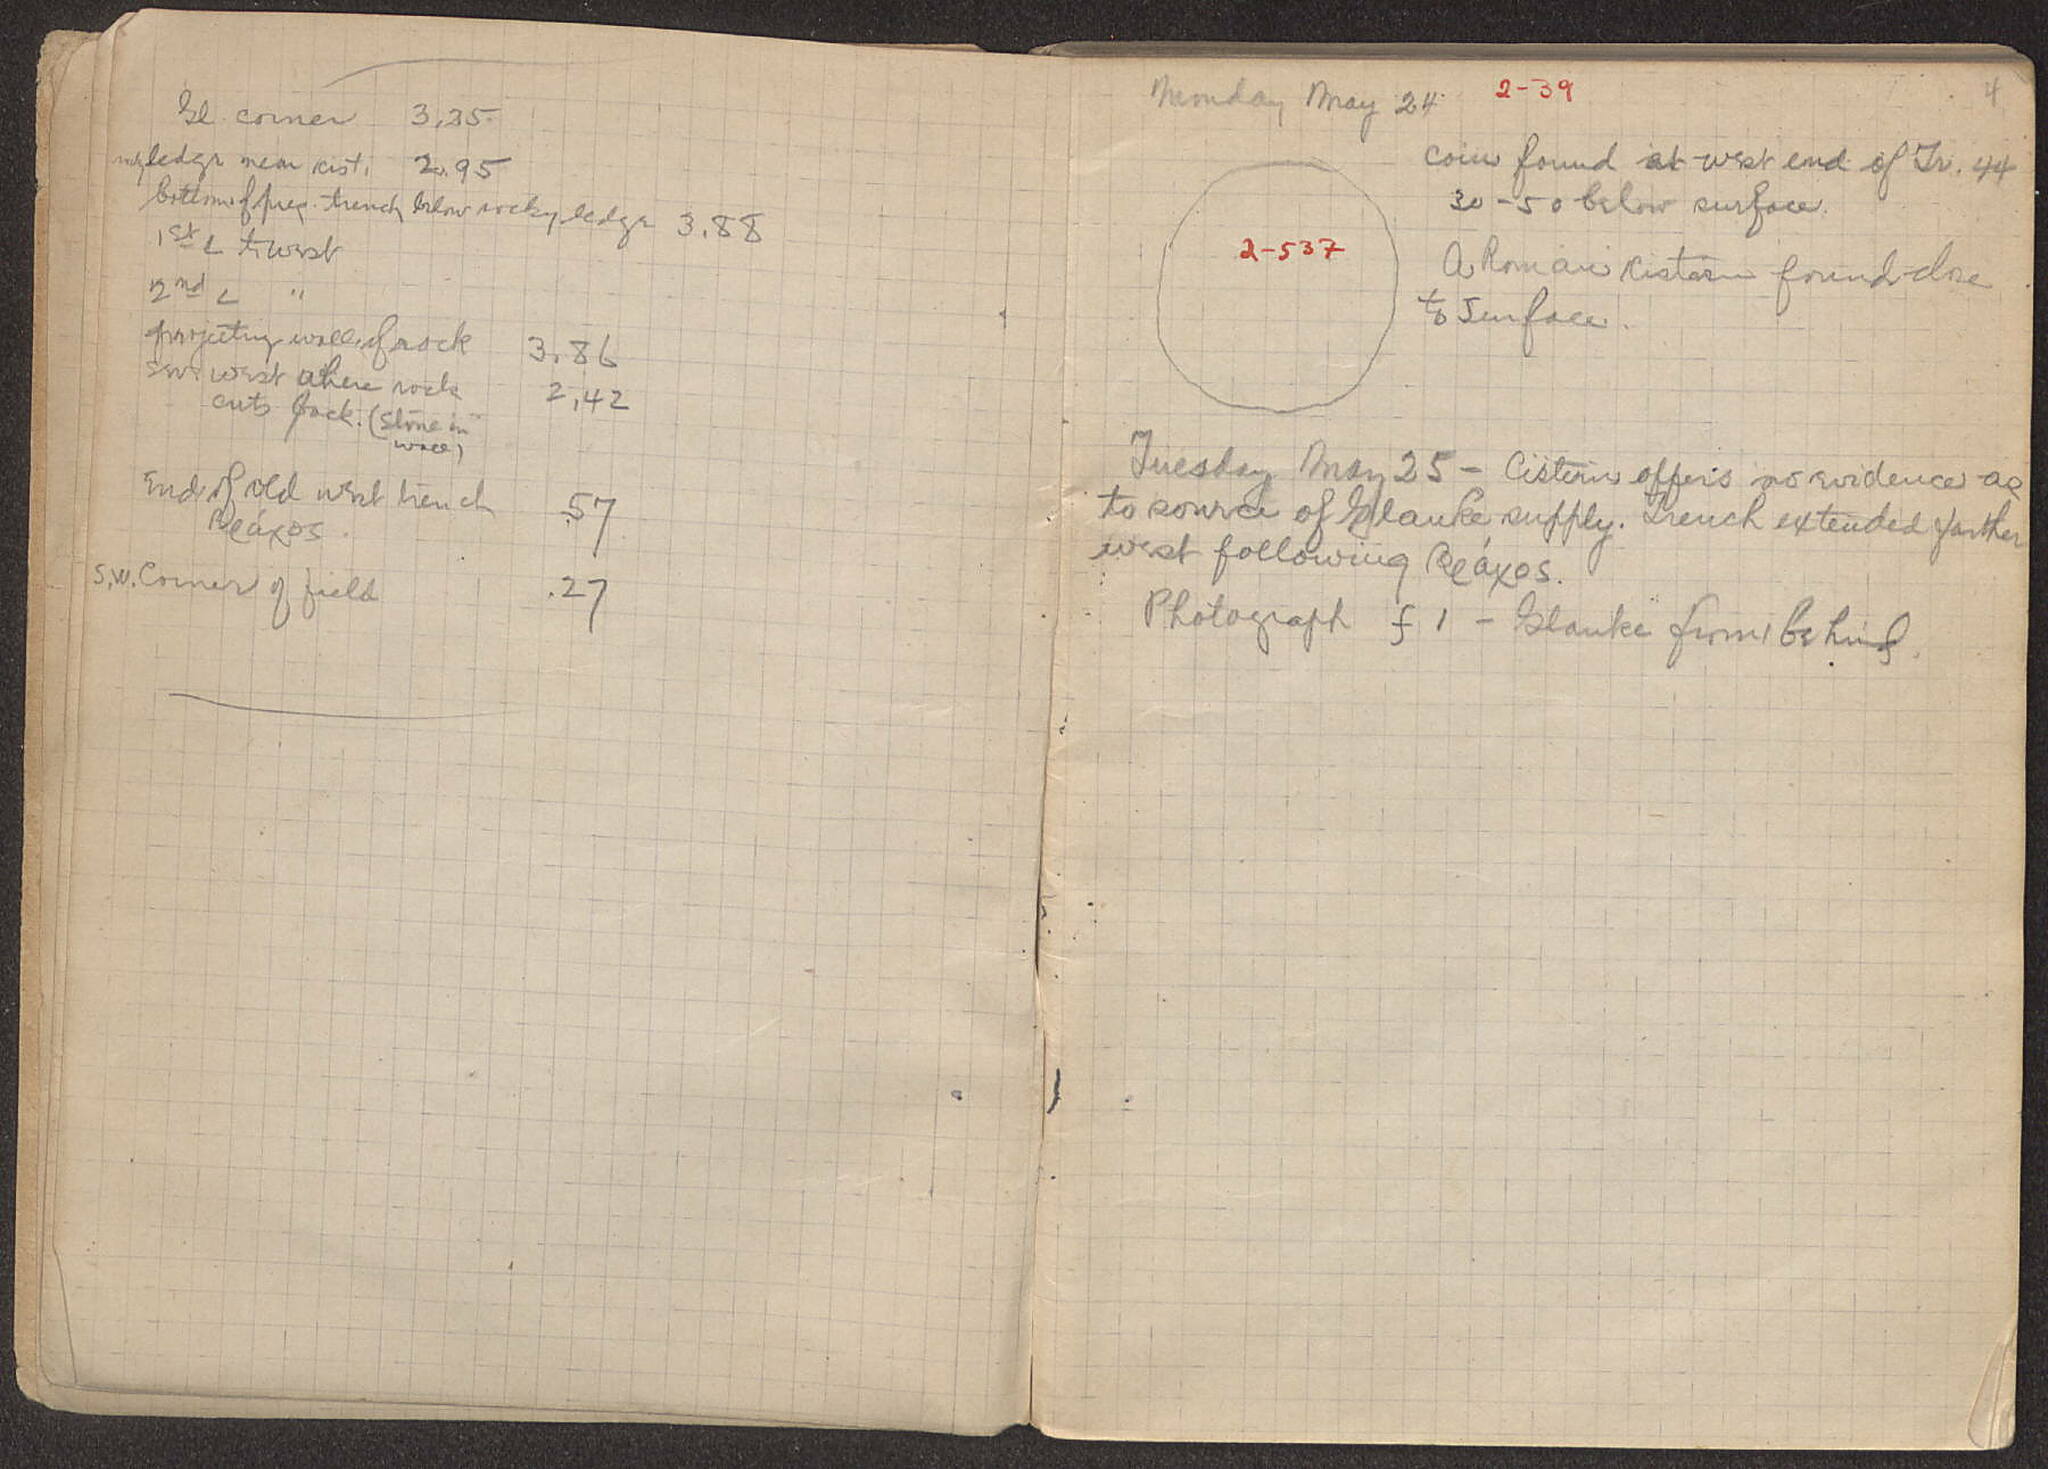 Gl. corner 3.25
ledge near cist. 2.95
bottom of prev. trench below rocky ledge 3.88
1st L to west
2nd L "
projecting wall of rock 3.86
west where rock 2,42
cuts back. (Stone in
wall)
End of old west trench .57
Βράχος.
S.W. Corner of field .27
Monday May 24 2-39
4
coin found at west end of Tr. 44
30-50 below surface.
2-537
A Roman cistern found close
to Surface.
Tuesday May 25 - Cistern offers no evidence as
to source of Glauke supply. Trench extended farther
west following βράχος.
Photograph f 1 - Glauke from behind.